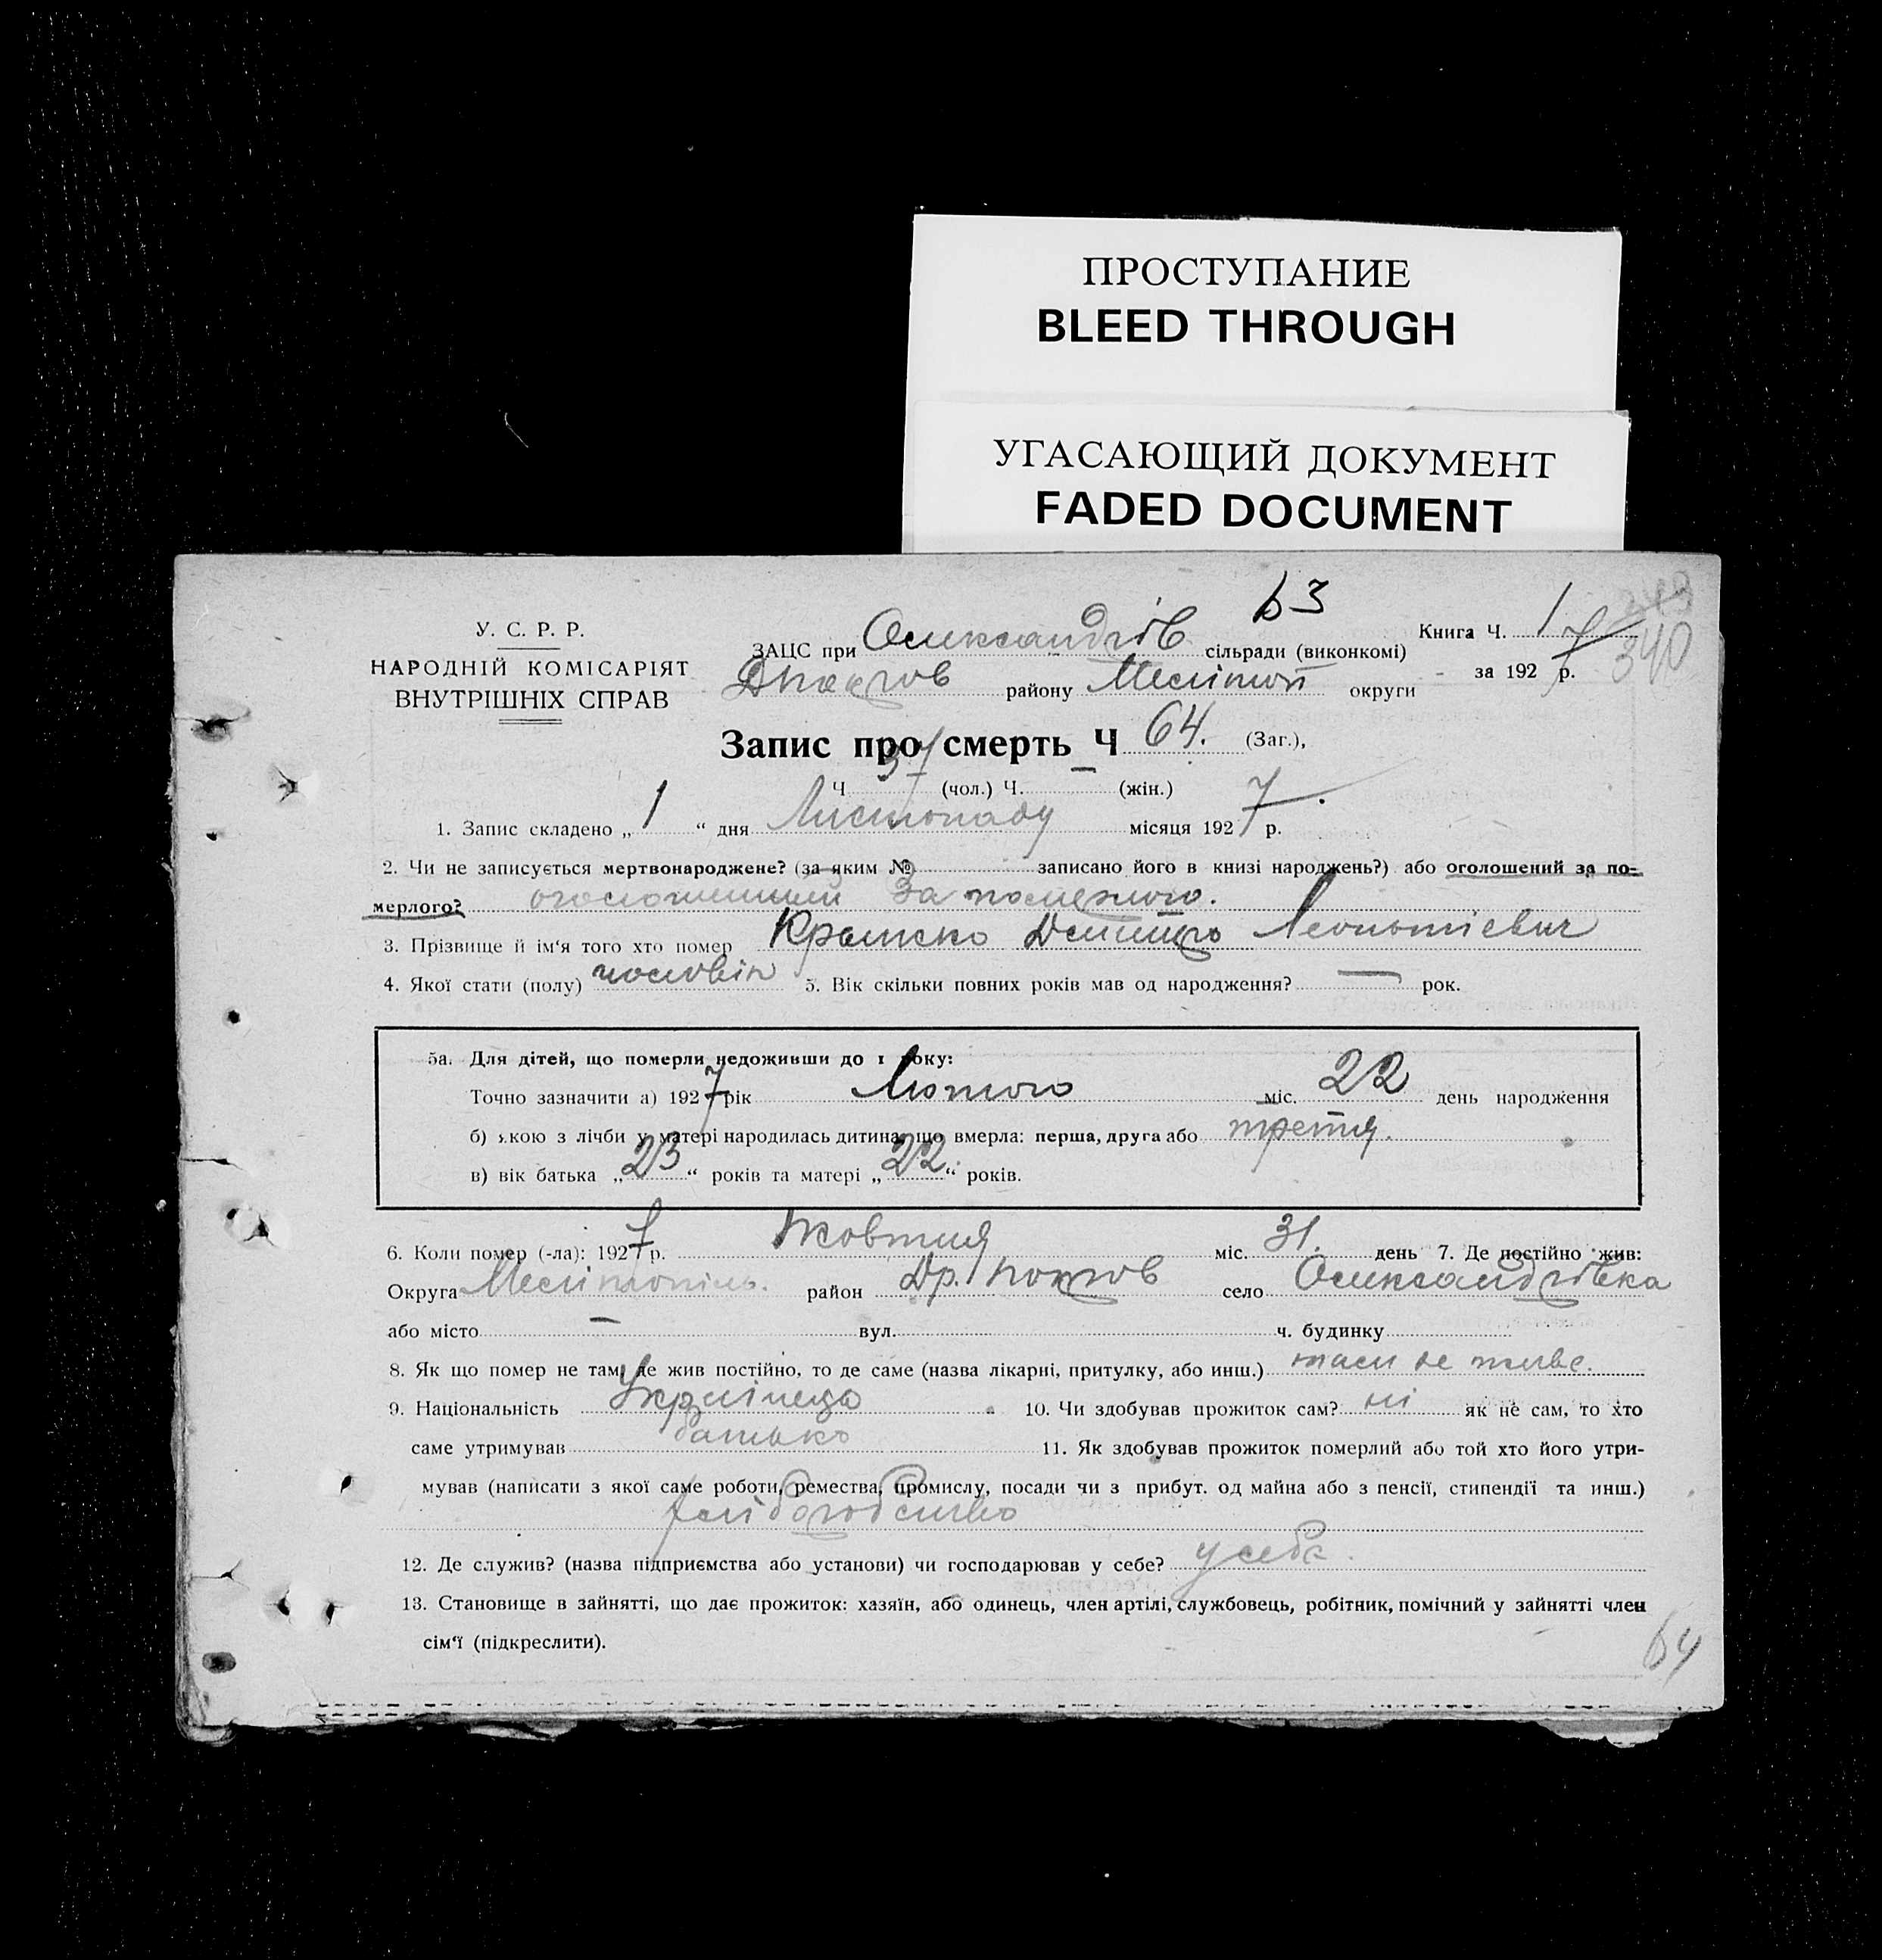 ПРОСТУПАНИЕ
BLEED THROUGH
УГАСАЮЩИЙ ДОКУМЕНТ
FADED DOCUMENT
63
У. С. Р. Р.
НАРОДНІЙ КОМІСАРІЯТ
ВНУТРІШНІХ СПРАВ
ЗАЦС при Олександрів сільради (виконкомі)
району Меліт округи
Книга Ч. 1
за 1927 р.
340
Запис про смерть Ч 64. (Заг.),
Ч 37 (чол.) Ч. (жін.)
1. Запис складено „1“ дня Листопаду місяця 1927 р.
2. Чи не записується мертвонароджене? (за яким № записано його в книзі народжень?) або оголошений за по-
мерлого? оголошений за померлого.
3. Прізвище й ім‘я того хто помер Дмитро Леонтієвич
4. Якої стати (полу) чоловік 5. Вік скільки повних років мав од народження? — рок.
5а. Для дітей, що померли недоживши до 1 року:
Точно зазначити а) 1927 рік Лютого міс. 22 день народження
б) якою з лічби у матері народилась дитина, що вмерла: перша, друга або третя.
в) вік батька „23“ років та матері „22“ років.
6. Коли помер (-ла): 1927 р. Жовтня міс. 31. день 7. Де постійно жив:
Округа Мелітопіль. район Др. Покров село Олександрівка
або місто — вул. ч. будинку
8. Як що помер не там, де жив постійно, то де саме (назва лікарні, притулку, або инш.) там де живе.
9. Національність Українець 10. Чи здобував прожиток сам? ні як не сам, то хто
саме утримував батько 11. Як здобував прожиток померлий або той хто його утри-
мував (написати з якої саме роботи, ремества, промислу, посади чи з прибут. од майна або з пенсії, стипендії та инш.)
хліборобство
12. Де служив? (назва підприємства або установи) чи господарював у себе? у себе.
13. Становище в зайнятті, що дає прожиток: хазяїн, або одинець, член артілі, службовець, робітник, помічний у зайнятті член
сім‘ї (підкреслити).
64